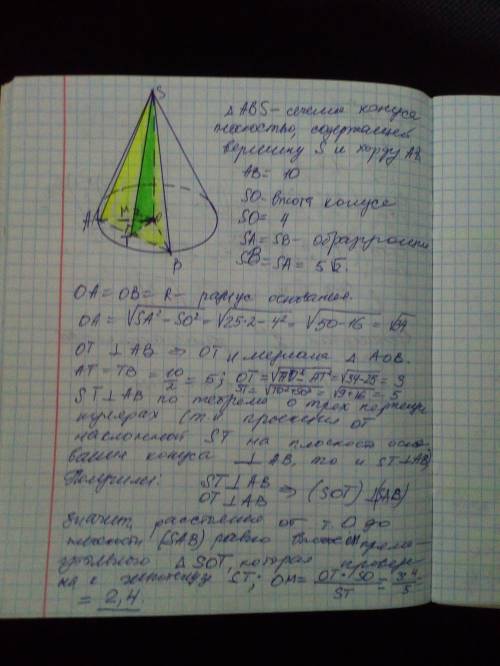 S
A
M
O
T
B
△ABS – сечение конуса
плоскостью, содержащей
вершину S и хорду AB.
AB = 10
SO – высота конуса
SO = 4
SA = SB – образующие
SB = SA = 5√2.
OA = OB = R – радиус основания.
OA = √SA² – SO² = √25·2 – 4² = √50 – 16 = √34
OT ⊥ AB ⇒ OT медиана △AOB.
AT = TB = 10/2 = 5; OT = √AO² – AT² = √34 – 25 = 3
ST = √TO² + SO² = √9 + 16 = 5
ST ⊥ AB по теореме о трех перпенди
кулярах (т.к проекция OT
наклонной ST на плоскость осно-
вания конуса ⊥ AB, то и ST ⊥ AB)
Получили: ST ⊥ AB
OT ⊥ AB ⇒ (SOT) ⊥ (SAB)
Значит, расстояние от т. O до
плоскости (SAB) равно высоте OM прямо-
угольного △SOT, которая проведе-
на к гипотенузе ST; OM = OT·SO/ST = 3·4/5
= 2,4.